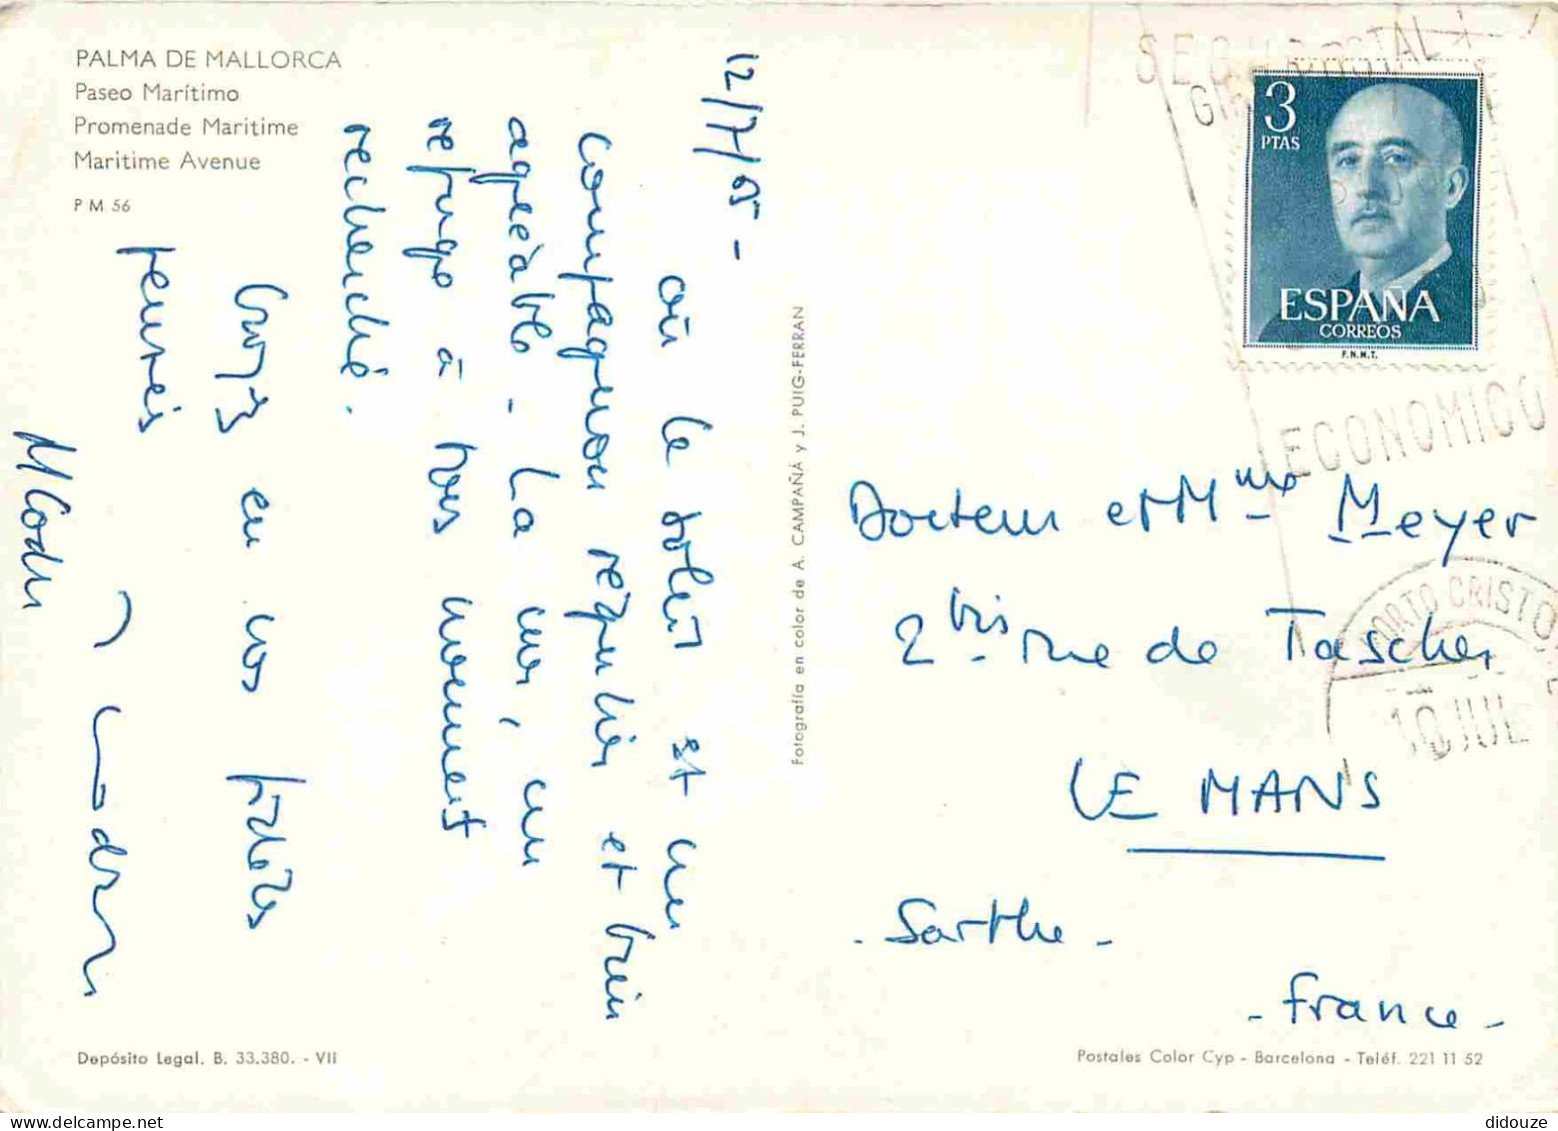 PALMA DE MALLORCA
Paseo Marítimo
Promenade Maritime
Maritime Avenue
P M 56
12/7/65 -
où le soleil est un
compagnon régulier et bien
agréable - La mer, un
refuge à tous moment
recherché.
en nos fidèles
pensées
Fotografía en color de A. CAMPAÑÁ y J. PUIG-FERRAN
3
PTAS
ESPAÑA
CORREOS
F.N.M.T.
POSTAL
ECONOMICO
PORTO CRISTO
10 JUL
Docteur et Mme Meyer
2 bis rue de Tascher
LE MANS
- Sarthe -
- France -
Depósito Legal. B. 33.380. - VII
Postales Color Cyp - Barcelona - Teléf. 221 11 52
didouze